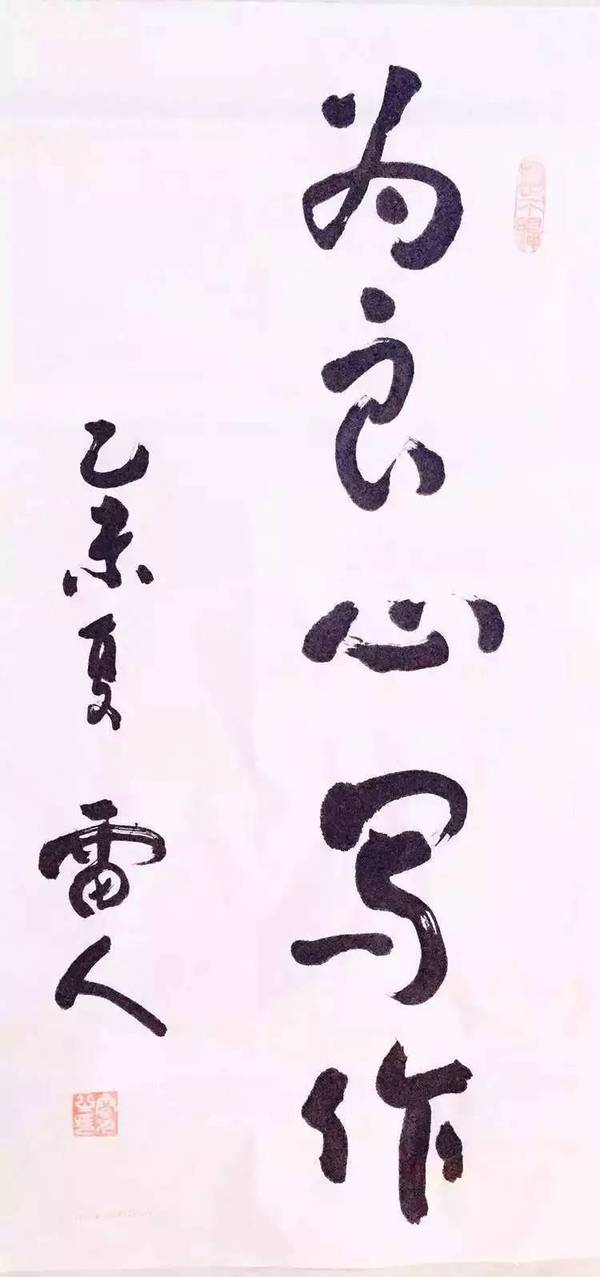 为良心写作
乙未夏 雷人